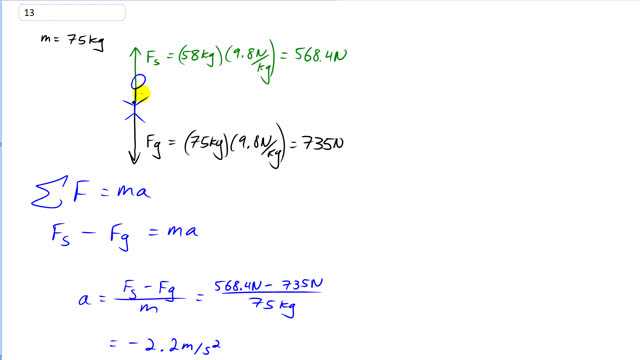 13
m = 75kg
Fs = (58kg)(9.8N/kg) = 568.4N
Fg = (75kg)(9.8N/kg) = 735N
∑F = ma
Fs − Fg = ma
a = Fs − Fg / m = 568.4N − 735N / 75kg
= −2.2m/s²